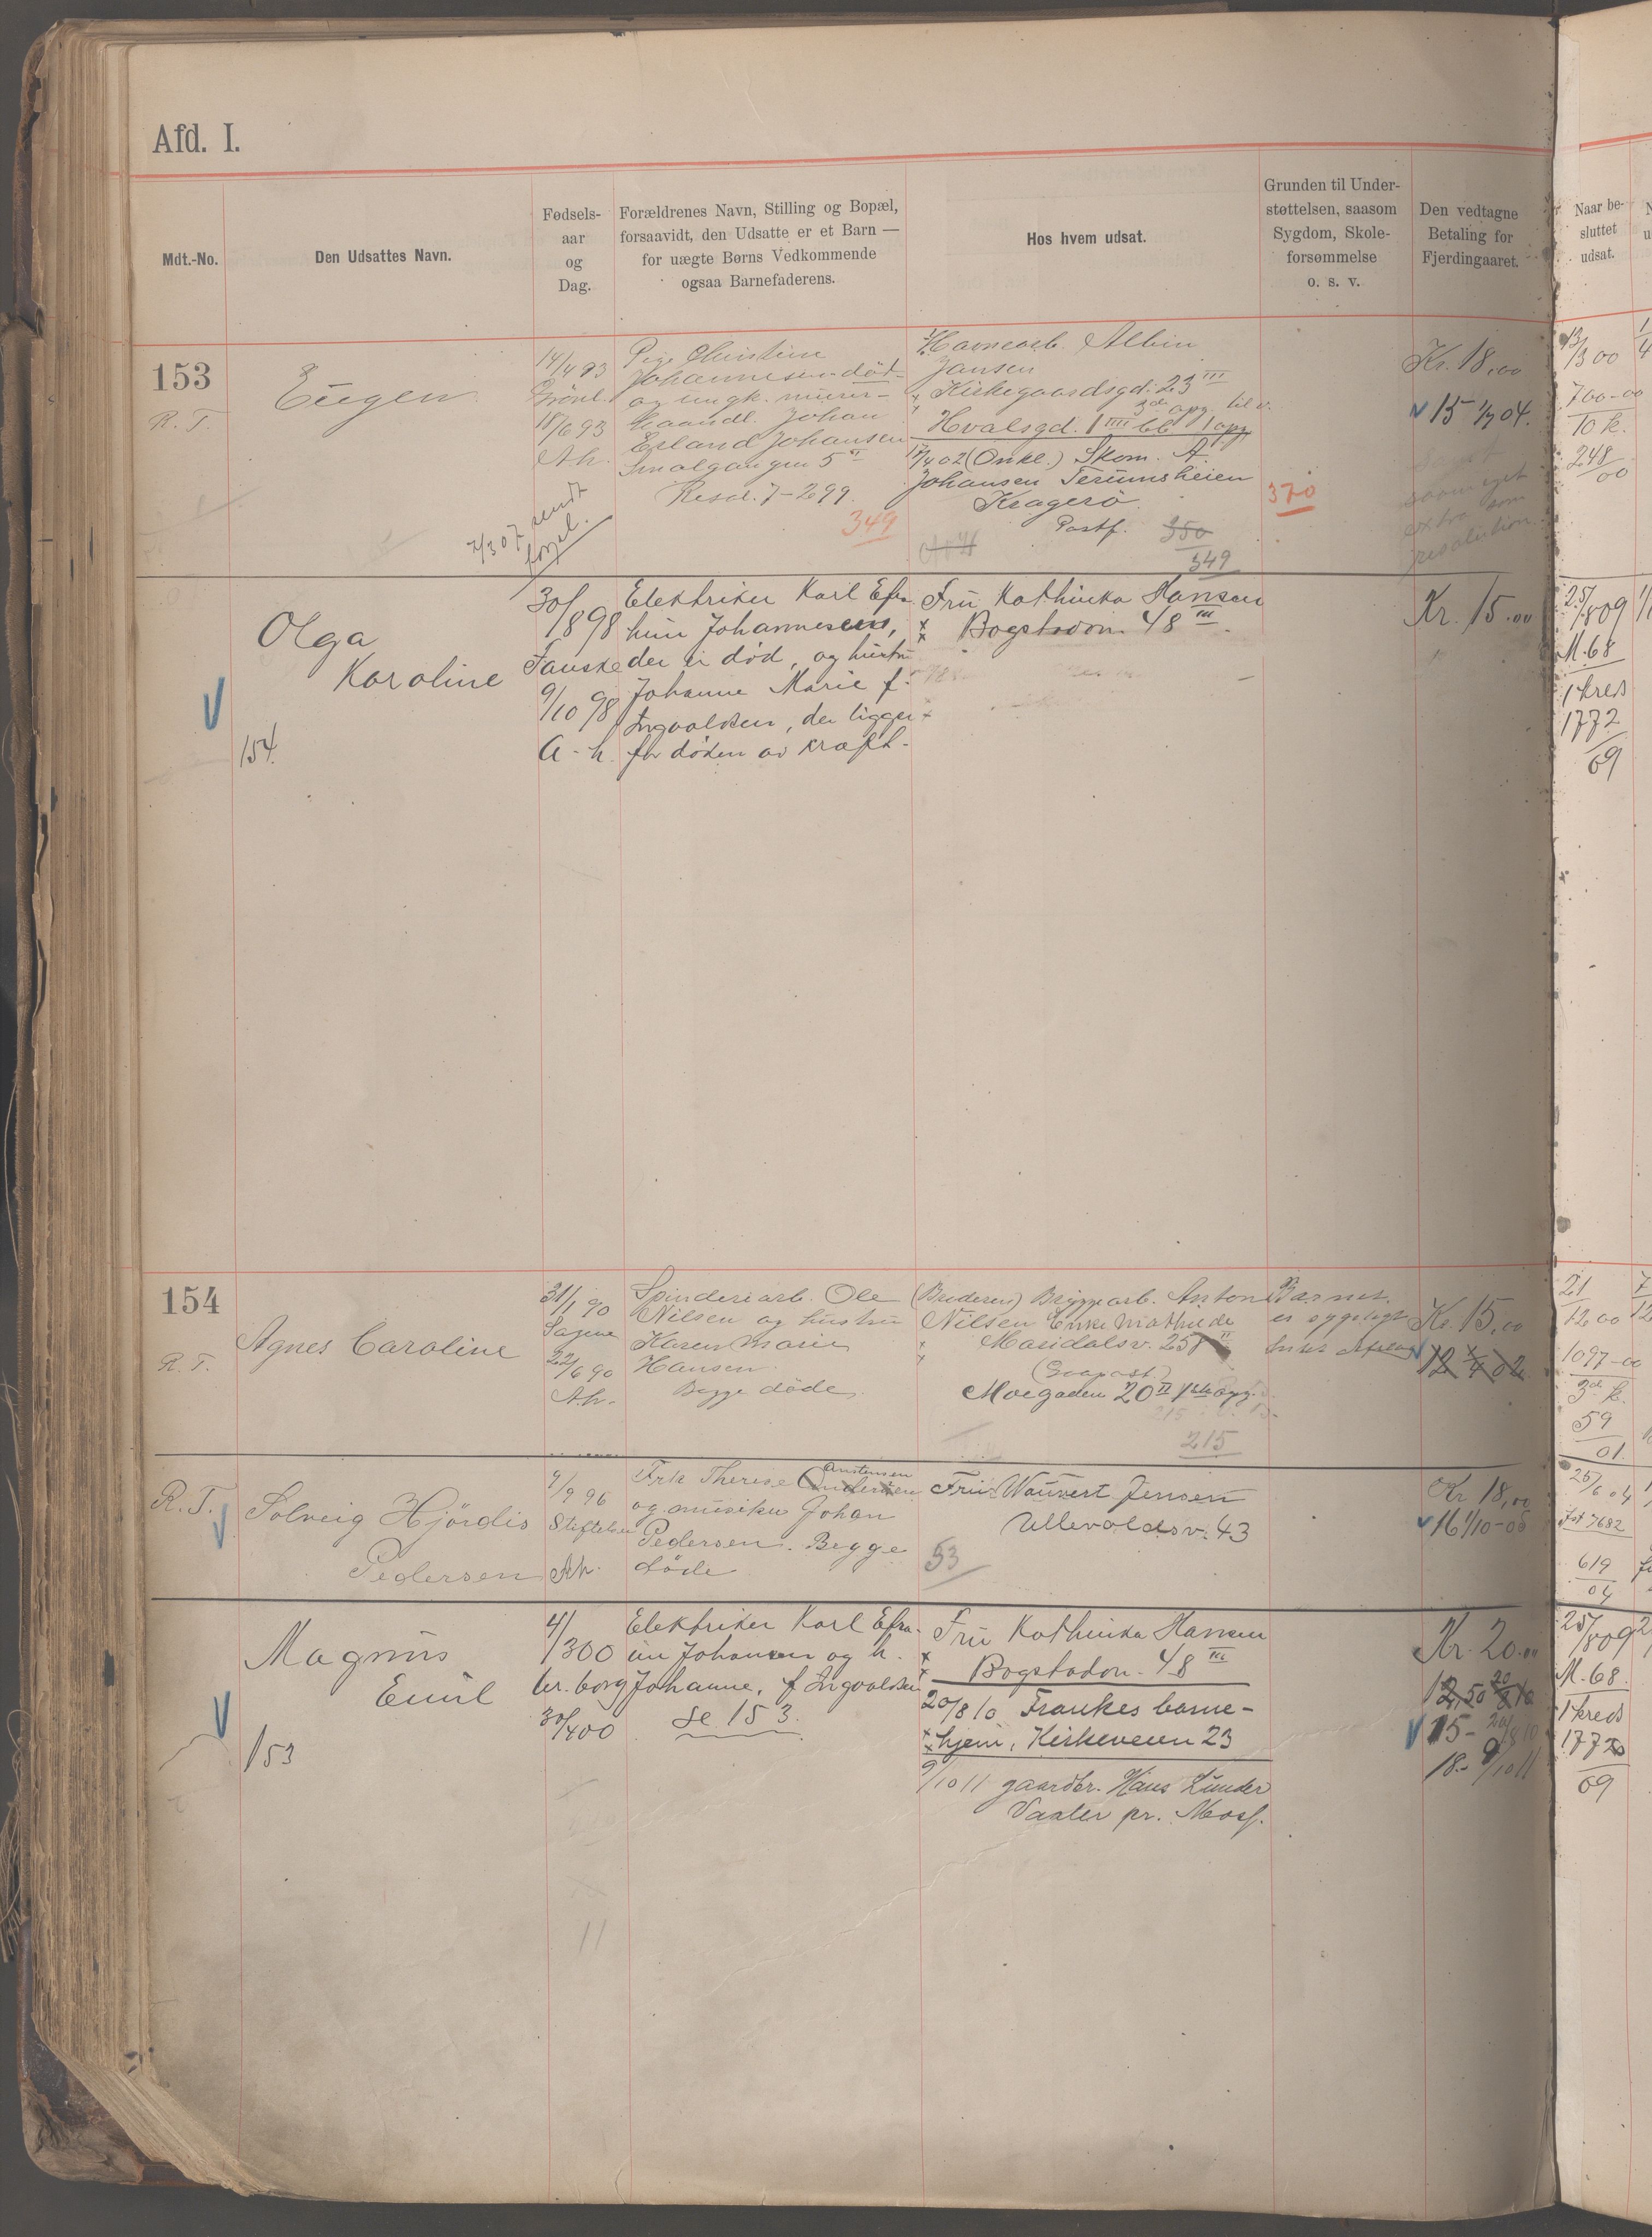 Afd. I.
Mdt.-No.
Den Udsattes Navn.
Fødsels-
aar
og
Dag.
Forældrenes Navn, Stilling og Bopæl,
forsaavidt, den Udsatte er et Barn —
for uægte Børns Vedkommende
ogsaa Barnefaderens.
Hos hvem udsat.
Grunden til Under-
støttelsen, saasom
Sygdom, Skole-
forsømmelse
o. s. v.
Den vedtagne
Betaling for
Fjerdingaaret.
Naar be-
sluttet
udsat.
153
R. T.
Eugen
14/4 93
Grönl.
18/6 93
Ah.
2/3 07 sendt
Pige Christine
Johannesen död
og ungk. murer-
haandl. Johan
Erland Johansen
Smalgangen 5
Resol. 7-2 99.
349
Havnearb. Albin
Jansen
Kirkegaardsgd. 23 III
3de opg. til v.
Hvalsgd. 1 IIII bb 1 opg
17/4 02 (Onkel.) Skom. A.
Johansen
Kragerö
Postf. 350
349
370
Kr. 18,00
15 1/7 04.
extra som
resolution
13/3 00
700-00
10 k.
248
00
Olga
Karoline
154.
30/
1898
Fauske
9/10 98
A-h.
Elektriker Karl Efra
him Johannesen,
der er död, og hustru
Johanne Marie f.
Ingvaldsen, der ligger
for döden av kræft.
Fru Kathinka Hansen
Bogstadvn. 48 III
Kr. 15.00
25/809
M. 68
1 kreds
1772
09
154
R. T.
Agnes Caroline
31/1 90
Sagene
22/6 90
A.h.
Spinderiarb. Ole
Nilsen og hustru
Karen Marie
Hansen
Begge döde.
(Broderen) Bryggearb. Anton
Nilsen Enke Mathilde
Maridalsv. 258 II
Moegaden 20 II 1ste opg.
215
Barnet
er sygeligt
Kr. 15,00
12 1/4 02
21
12 00
1097-00
3de k.
59
01.
R. T.
Solveig Hjördis
Pedersen
9/9 96
Stiftelsen
Ah.
Frk Therese Andersen
Austensen
og musiker Johan
Pedersen. Begge
döde
Fru Wauvert Jensen
Ullevoldsv. 43
53
Kr 18,00
16 1/10-05
25/6 04
7682
619
04
Magnus
Emil
153
4/
300
Ur.borg
30/400
Elektriker Karl Efra-
im Johansen og h.
Johanne, f. Ingvaldsen
Se 153.
Fru Kathinka Hansen
Bogstadvn. 48 III
20/8 10 Frankes barne-
hjem, Kirkeveien 23
9/10 11 gaardbr. Hans Lunder
Vaaler pr. Moss.
Kr. 20.00
12,50 20/8 10
15- 20/8 10
18.- 9/10 11
25/809
M. 68.
1 kreds
1772
09
11